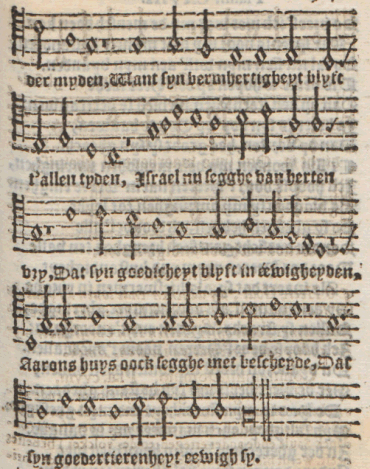 der myden, Want syn bermhertigheyt blyft
t'allen tyden, Israel nu segghe van herten
vry, Dat syn goedicheyt blyft in eewigheyden,
Aarons huys oock segghe met bescheyde, Dat
syn goedertierenheyt eewigh sy.